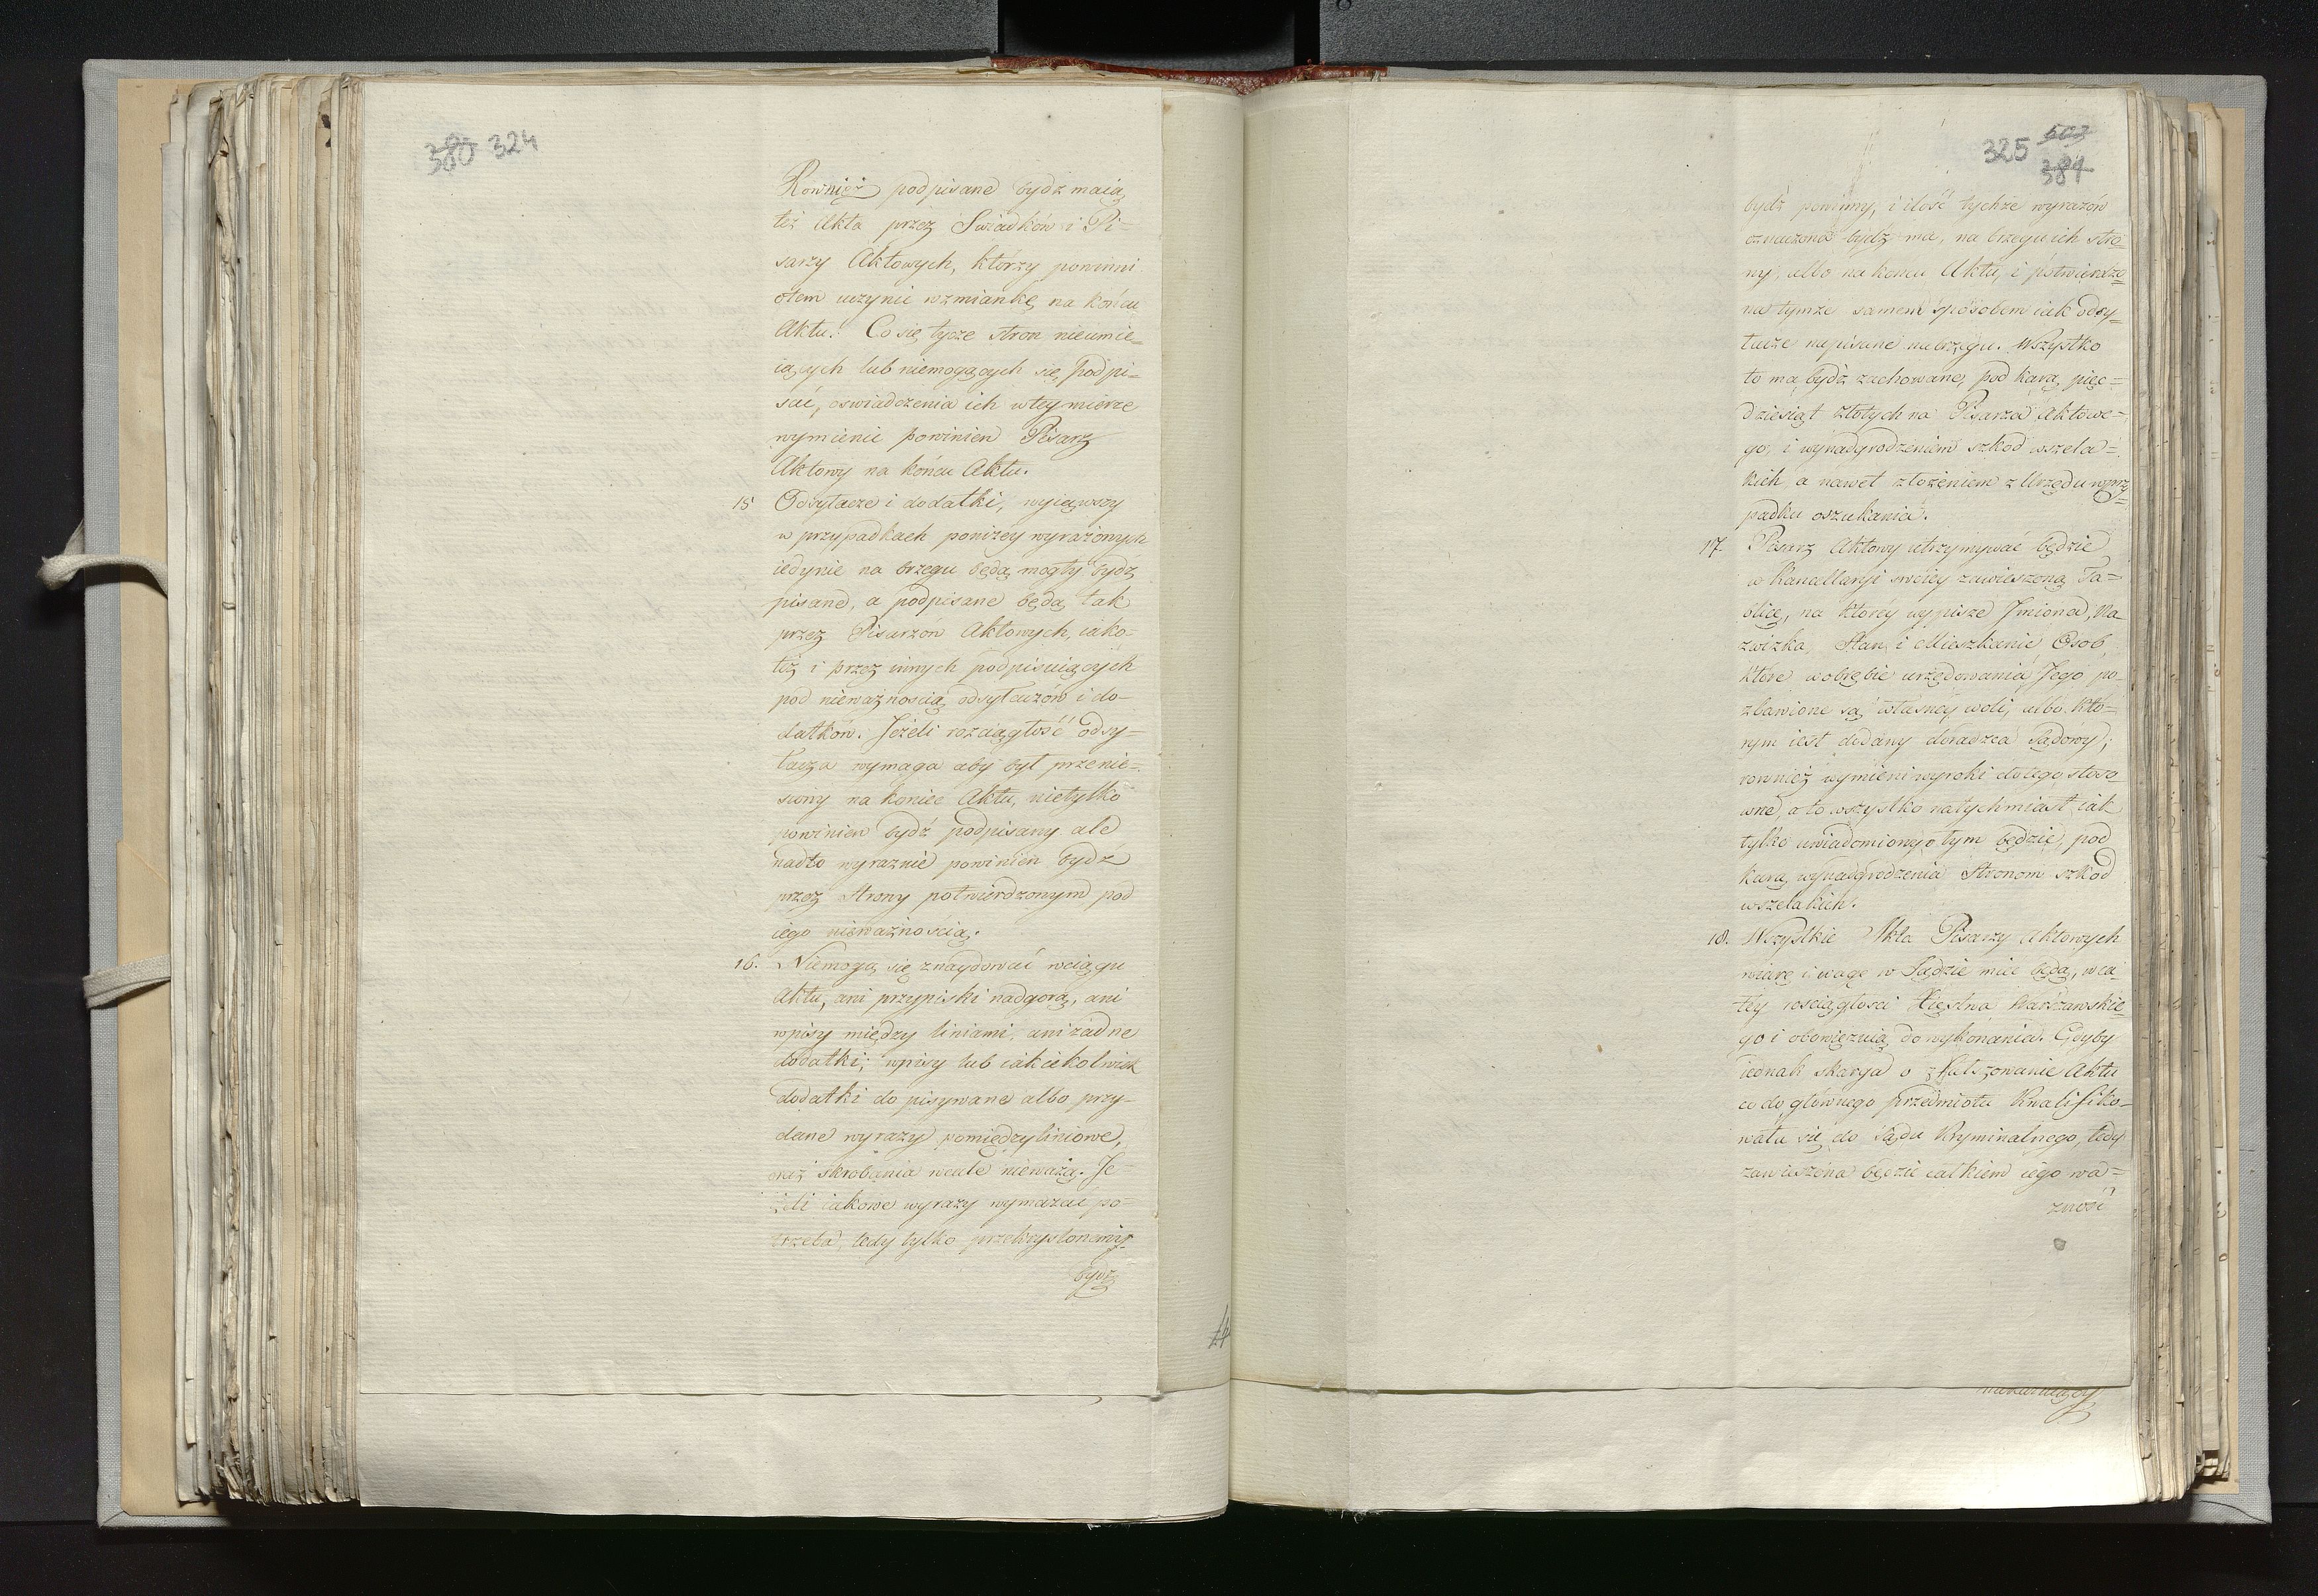 380 324
Rownież podpisane bydź maią
też Akta przez Swiadków i Pi=
sarzy Aktowych, którzy powinni
otem uczynić wzmiankę na końcu
Aktu. Co się tycze stron nieumie=
iących lub niemogących się podpi=
sać, oswiadczenia ich wtey mierze
wymienić powinien Pisarz
Aktowy na końcu Aktu.
15 Odsyłacze i dodatki, wyiąwszy
w przypadkach poniżéy wyrażonych
iedynie na brzegu będą mogły bydź
pisane, a podpisane będą tak
przez Pisarzów Aktowych, iako=
też i przez innych podpisuiących
pod nieważnoscią odsyłaczów i do-
datków. Jeżeli rozciągłość odsy=
łacza wymaga aby był przenie=
siony na koniec Aktu, nietylko
powinien bydź podpisany ale
nadto wyraznie powinien bydź
przez Strony potwierdzonym pod
iego nieważnością.
16. Niemogą się znaydować wciągu
Aktu, ani przypiski nadgorą, ani
wpisy między liniami, ani żadne
dodatki; wpisy lub iakiekolwiek
dodatki do pisywane albo przy-
dane wyrazy pomiędzyliniowe,
oraz skrobania wcale nieważą. Je=
żeli iakowe wyrazy wymazać po-
trzeba, tedy tylko przekryslonemi
bydź
325 503
384
bydź powinny, i ilość tychże wyrazów
oznaczona bydź ma, na brzegu ich stro=
ny, albo na koncu Aktu, i potwierdzo=
na tymże samem sposobem iak odsy=
łacze napisane na brzegu. Wszystko
to ma bydź zachowane, pod karą pięć=
dziesiąt złotych na Pisarza Aktowe=
go, i wynadgrodzeniem szkod wszela=
kich, a nawet złożeniem z Urzędu wprzy=
padku oszukania.
17. Pisarz Aktowy utrzymywać będzie
w Kancellaryi swoiey zawieszoną Ta=
blicę, na ktorey wypisze Jmiona, Na
zwizka, Stan i Mieszkanie Osob,
które wobrębie urzędowania Jego po-
zbawione są własney woli, albo kto=
rym iest dodany doradzca Sądowy;
rownież wymieni wyroki do tego stoso
wne, a to wszystko natychmiast iak
tylko uwiadomiony o tym będzie, pod
karą wynadgrodzenia Stronom szkod
wszelakich.
18. Wszystkie Akta Pisarzy Aktowych
wiarę i wagę w Sądzie mieć będą, w ca
łey rosciągłosci Xięstwa Warszawskie=
go i obowięzuią do wykonania. Gdyby
iednak skarga o zfałszowanie Aktu
co do głównego przedmiotu kwalifiko-
wała się do Sądu Kryminalnego, tedy
zawieszona będzie całkiem iego wa=
żność